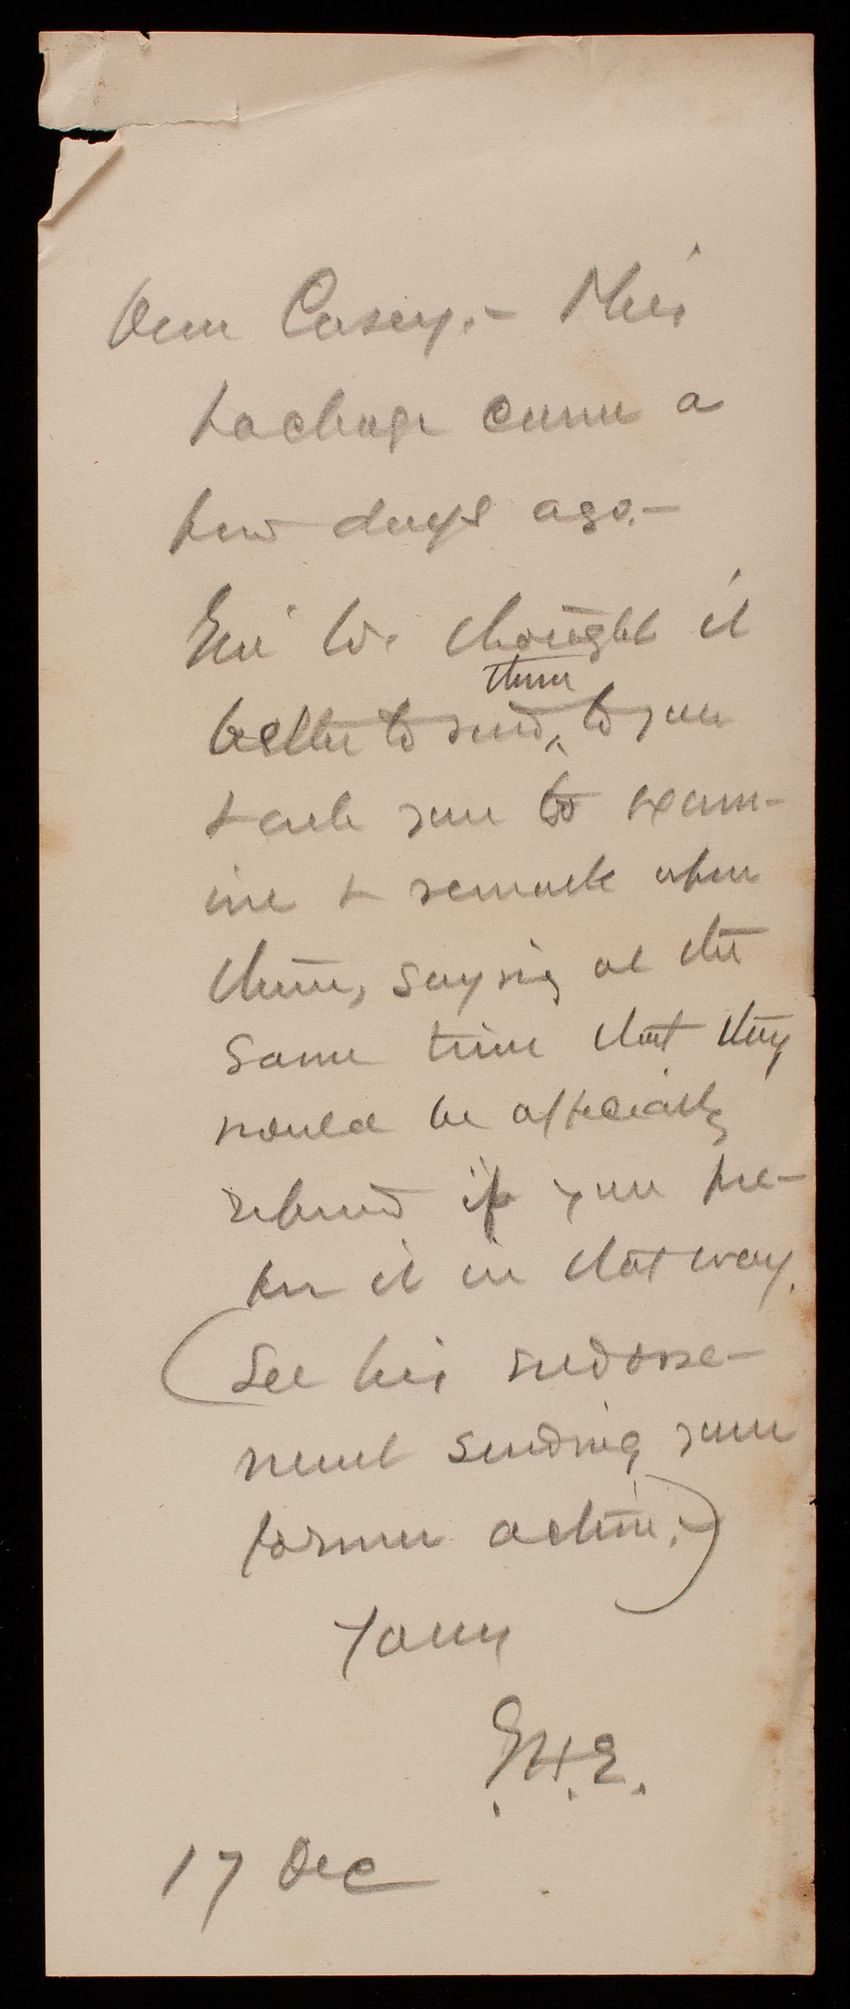 Dear Casey.- This
package came a
few days ago.-
Gen'l W. thought it
better to send them to you
& ask you to exam-
ine & remark upon
them, saying at the
same time that they
would be officially
referred if you pre-
fer it in that way.
(See his indorse-
ment sending your
former action.-)
Yours
G.H.E.
17 Dec